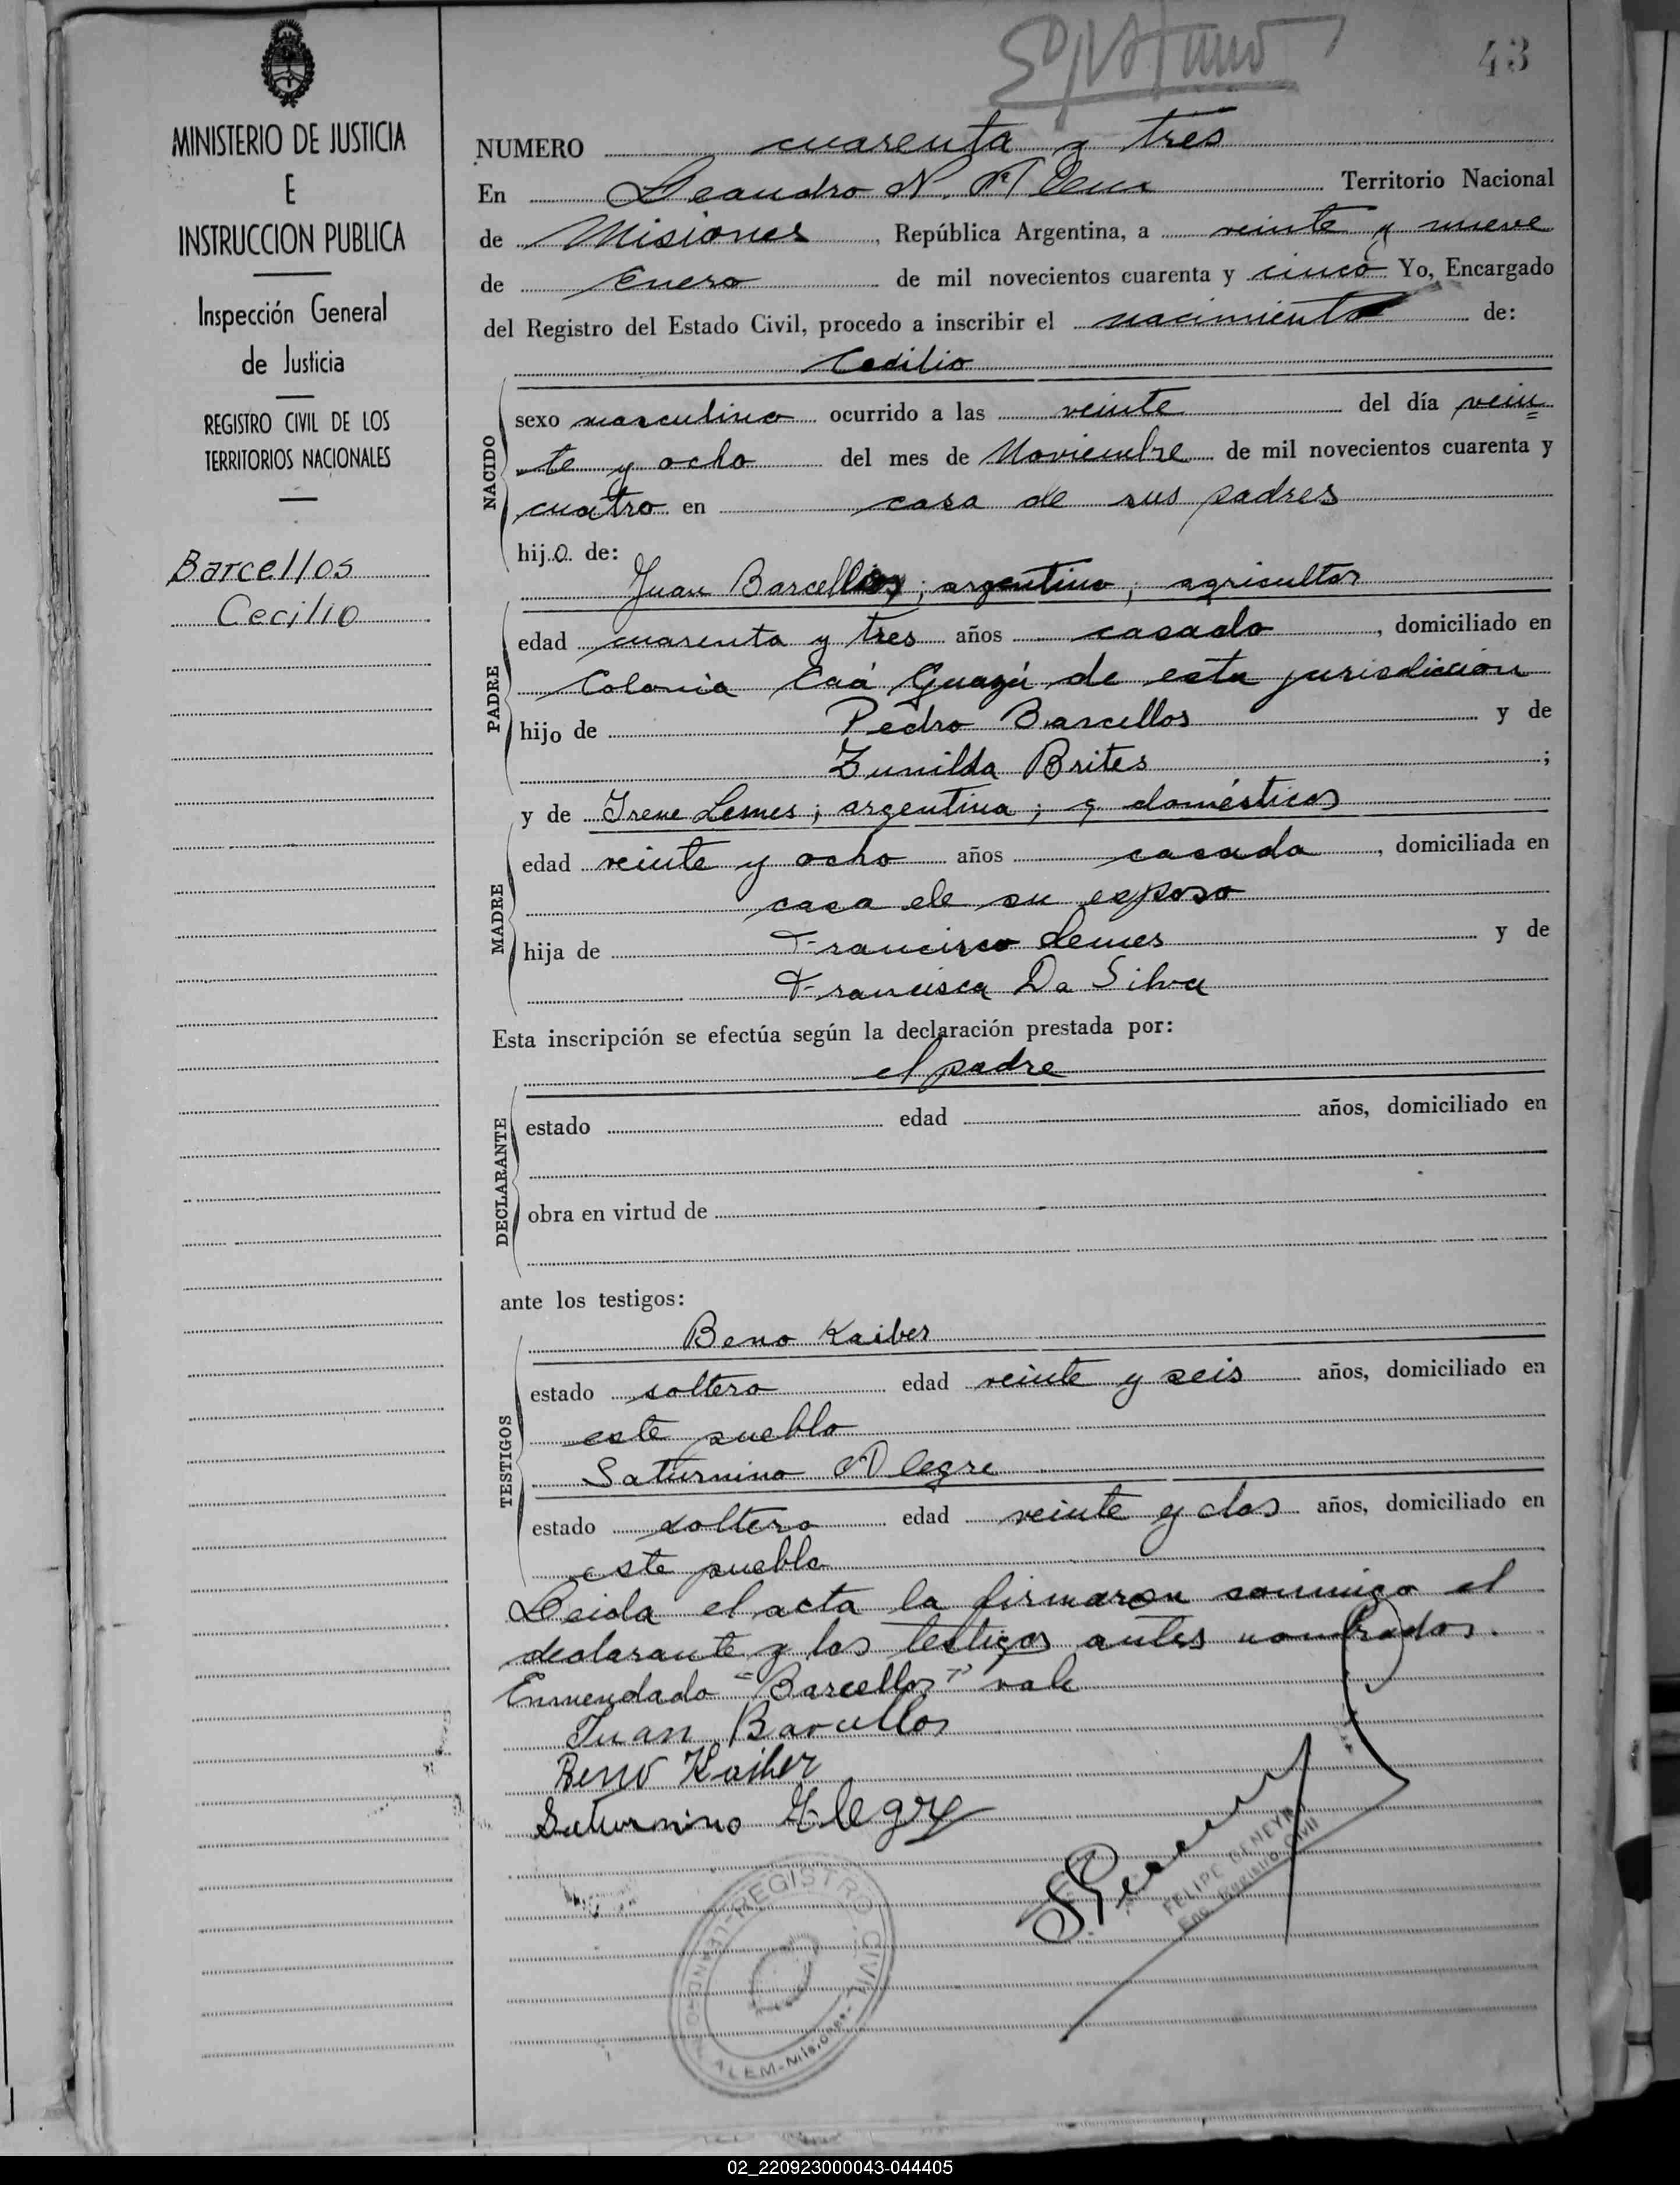 43
MINISTERIO DE JUSTICIA
E
INSTRUCCION PUBLICA
Inspección General
de Justicia
REGISTRO CIVIL DE LOS
TERRITORIOS NACIONALES
Barcellos
Cecilio
NUMERO cuarenta y tres
En Leandro N. Alem Territorio Nacional
de Misiones, República Argentina, a veinte y nueve
de Enero de mil novecientos cuarenta y cinco Yo, Encargado
del Registro del Estado Civil, procedo a inscribir el nacimiento de:
Cecilio
NACIDO
sexo masculino ocurrido a las veinte del día vein=
te y ocho del mes de Noviembre de mil novecientos cuarenta y
cuatro en casa de sus padres
hijo de:
Juan Barcellos; argentino; agricultor
PADRE
edad cuarenta y tres años casado, domiciliado en
Colonia Caá Guazú de esta jurisdiccion
hijo de Pedro Barcellos y de
Zunilda Brites;
y de Irene Lemes; argentina; q domésticos
MADRE
edad veinte y ocho años casada, domiciliada en
casa de su esposo
hija de Francisco Lemes y de
Francisca Da Silva
Esta inscripción se efectúa según la declaración prestada por:
el padre
DECLARANTE
estado edad años, domiciliado en
obra en virtud de
ante los testigos:
Beno Kaiber
TESTIGOS
estado soltero edad veinte y seis años, domiciliado en
este pueblo
Saturnino Alegre
estado soltero edad veinte y dos años, domiciliado en
este pueblo
Leida el acta la firmaron conmigo el
declarante y los testigos antes nombrados.
Enmendado "Barcellos" vale
Juan Barcellos
Beno Kaiber
Saturnino Alegre
FELIPE GENEYRO
Enc. Registro Civil
REGISTRO CIVIL
LEANDRO N. ALEM - Misiones
02_220923000043-044405